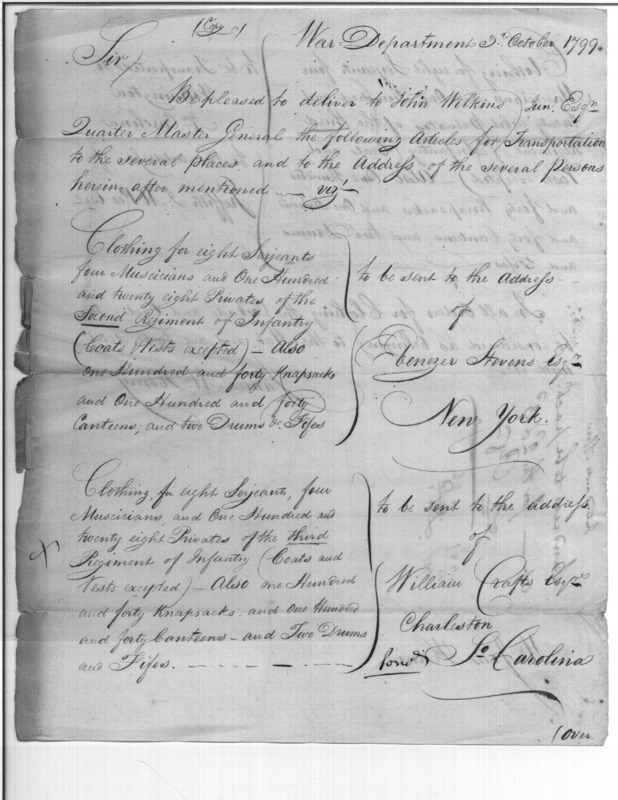 (Copy)
War Department 3d October 1799.
Sir,
Be pleased to deliver to John Wilkins Junr. Esqr.
Quarter Master General the following Articles for Transportation
to the several places, and to the Address of the several Persons
herein after mentioned — viz
Clothing for eight Serjeants
four Muscicians and One Hundred
and twenty eight Privates of the
Second Regiment of Infantry
(Coats Vests excepted) — Also
One Hundred and forty Knapsacks
and One Hundred and forty
Canteens; and two Drums & Fifes
to be sent to the address
of
Ebenezer Stevens Esqr.
New York.
Clothing, for eight Serjeants, four
Muscicians, and One Hundred and
twenty eight Privates of the third
Regiment of Infantry (Coats and
Vests excepted) — Also one Hundred
and forty Knapsacks and One Hundred
and forty Canteens — and Two Drums
and Fifes.
X
to be sent to the address
of
William Crafts Esqr.
Charleston
So. Carolina
(Over